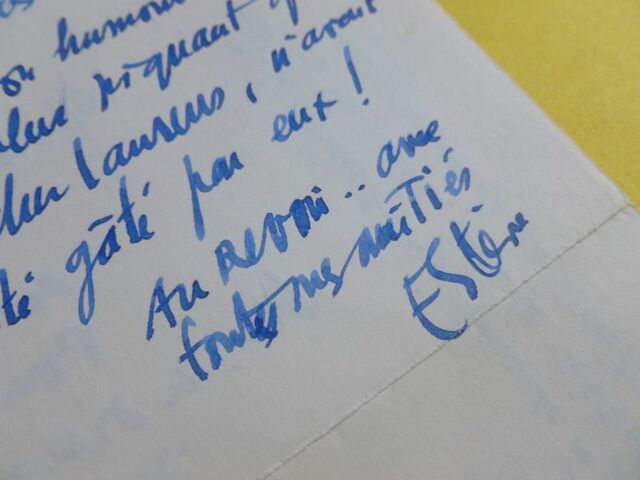 on humour
plus piquant q
cher Laurens, n'avait
té gâté par eux!
Au Revoir.. avec
toutes mes amitiés
Estève